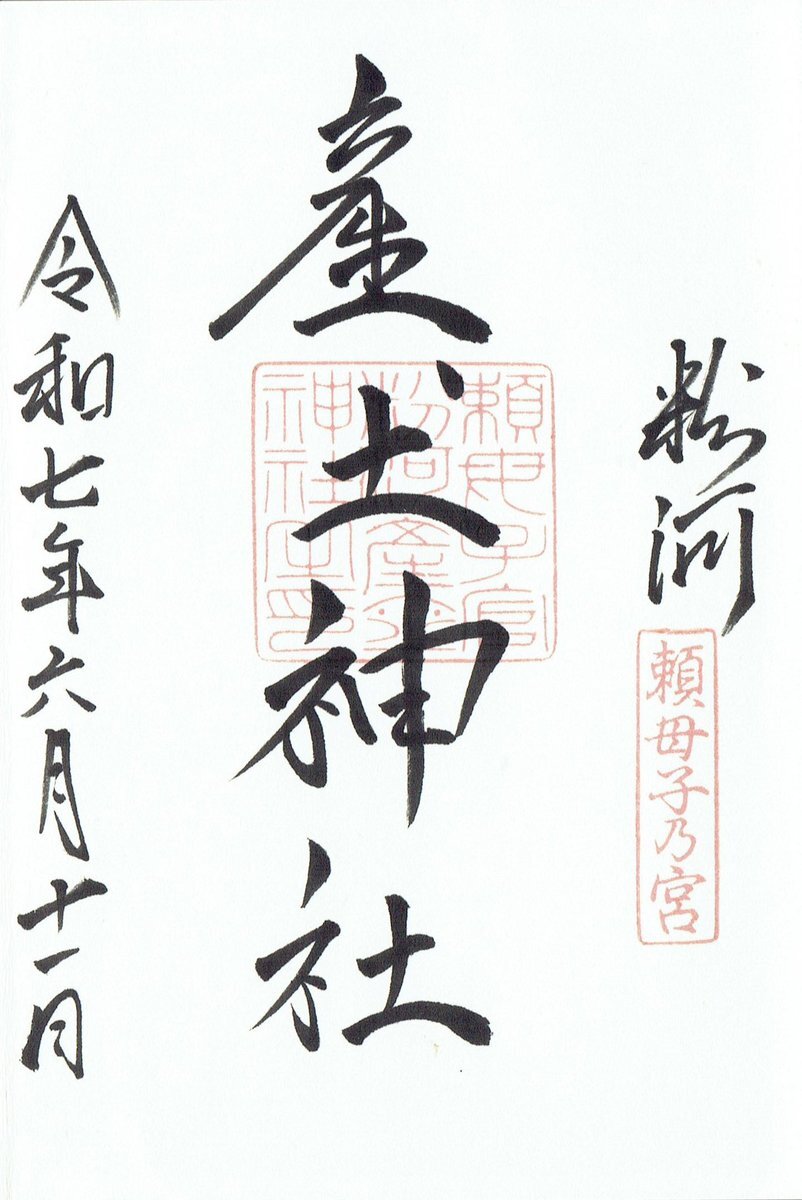 粉河
頼母子乃宮
産土神社
頼母子宮
粉河産土
神社之印
令和七年六月十一日